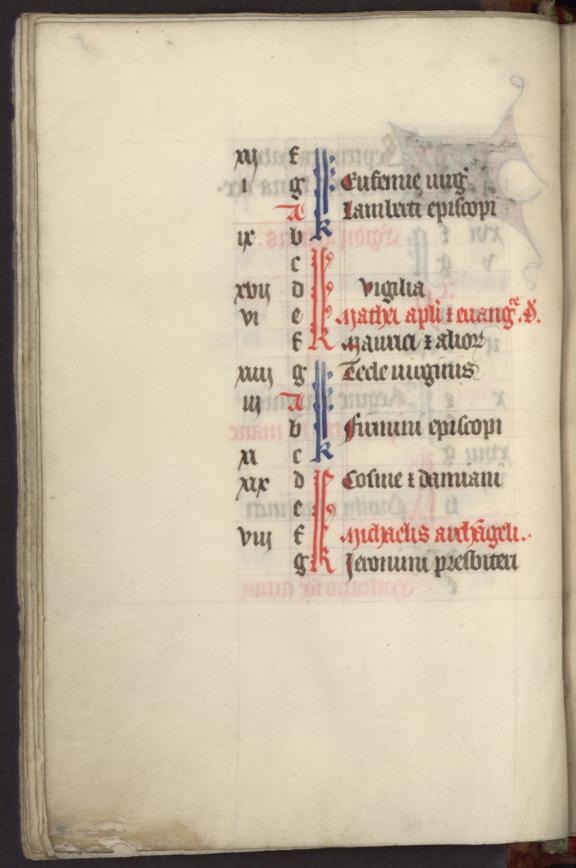 xij f
i g Eufemie uirg̃
A Lamberti episcopi
ix b k
c
xvij d Vigilia
vi e Mathei apl̃i ⁊ euang̃.
f k Mauricii ⁊ alioꝝ
xiiij g Tecle uirginis
iij A
b Firmini episcopi
xi c k
xix d Cosme ⁊ damiani
e
viij f Michaelis archãgeli.
g k Jeronimi presbiteri